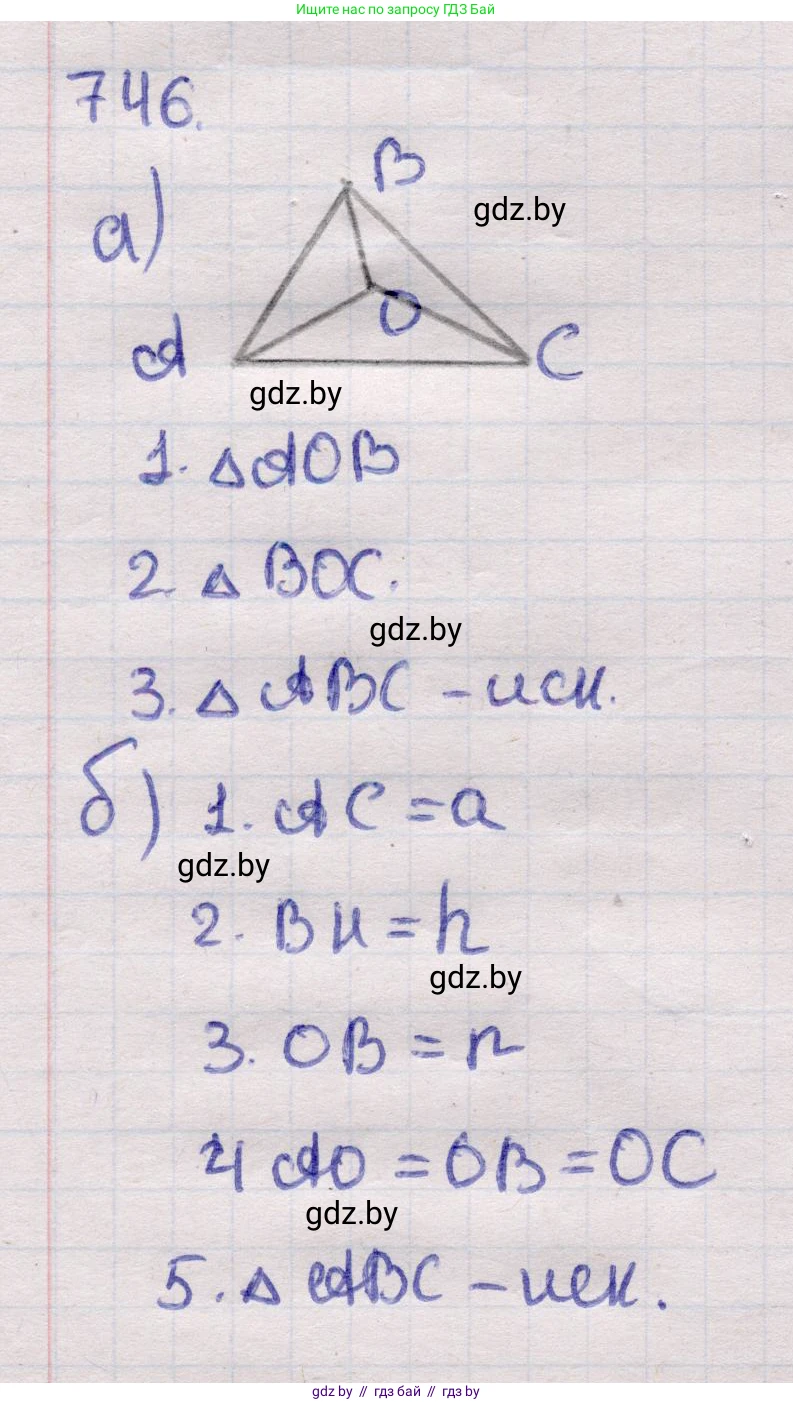 Ищите нас по запросу ГДЗ Бай
746.
а)
B
gdz.by
O
A
C
gdz.by
1. △AOB
2. △ BOC.
gdz.by
3. △ ABC – иск.
б) 1. AC = a
gdz.by
2. BH = h
gdz.by
3. OB = r
4 AO = OB = OC
gdz.by
5. △ ABC – иск.
gdz.by // гдз бай // гдз by